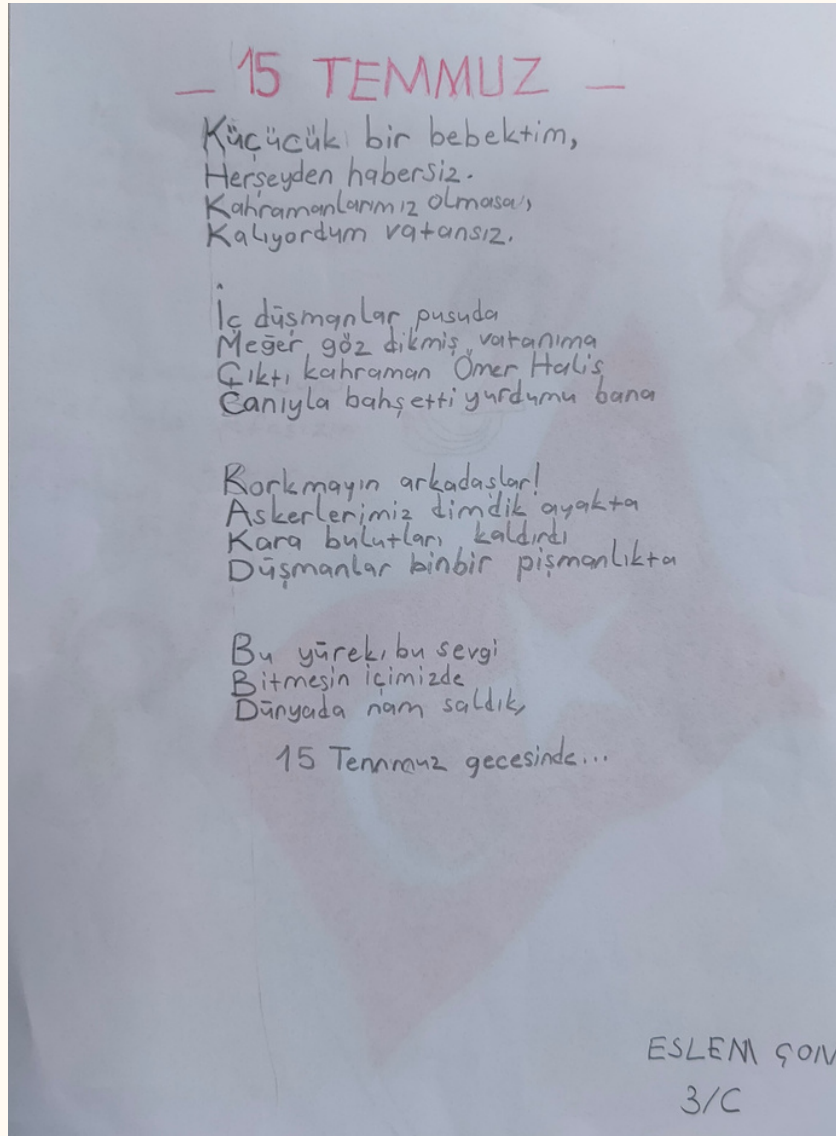 — 15 TEMMUZ —
Küçücük bir bebektim,
Herşeyden habersiz.
Kahramanlarımız olmasa,
Kalıyordum vatansız.
İç düşmanlar pusuda
Meğer göz dikmiş vatanıma
Çıktı kahraman Ömer Halis
Canıyla bahşetti yurdumu bana
Korkmayın arkadaşlar!
Askerlerimiz dimdik ayakta
Kara bulutları kaldırdı
Düşmanlar binbir pişmanlıkta
Bu yürek, bu sevgi
Bitmesin içimizde
Dünyada nam saldık,
15 Temmuz gecesinde...
ESLEM
3/C